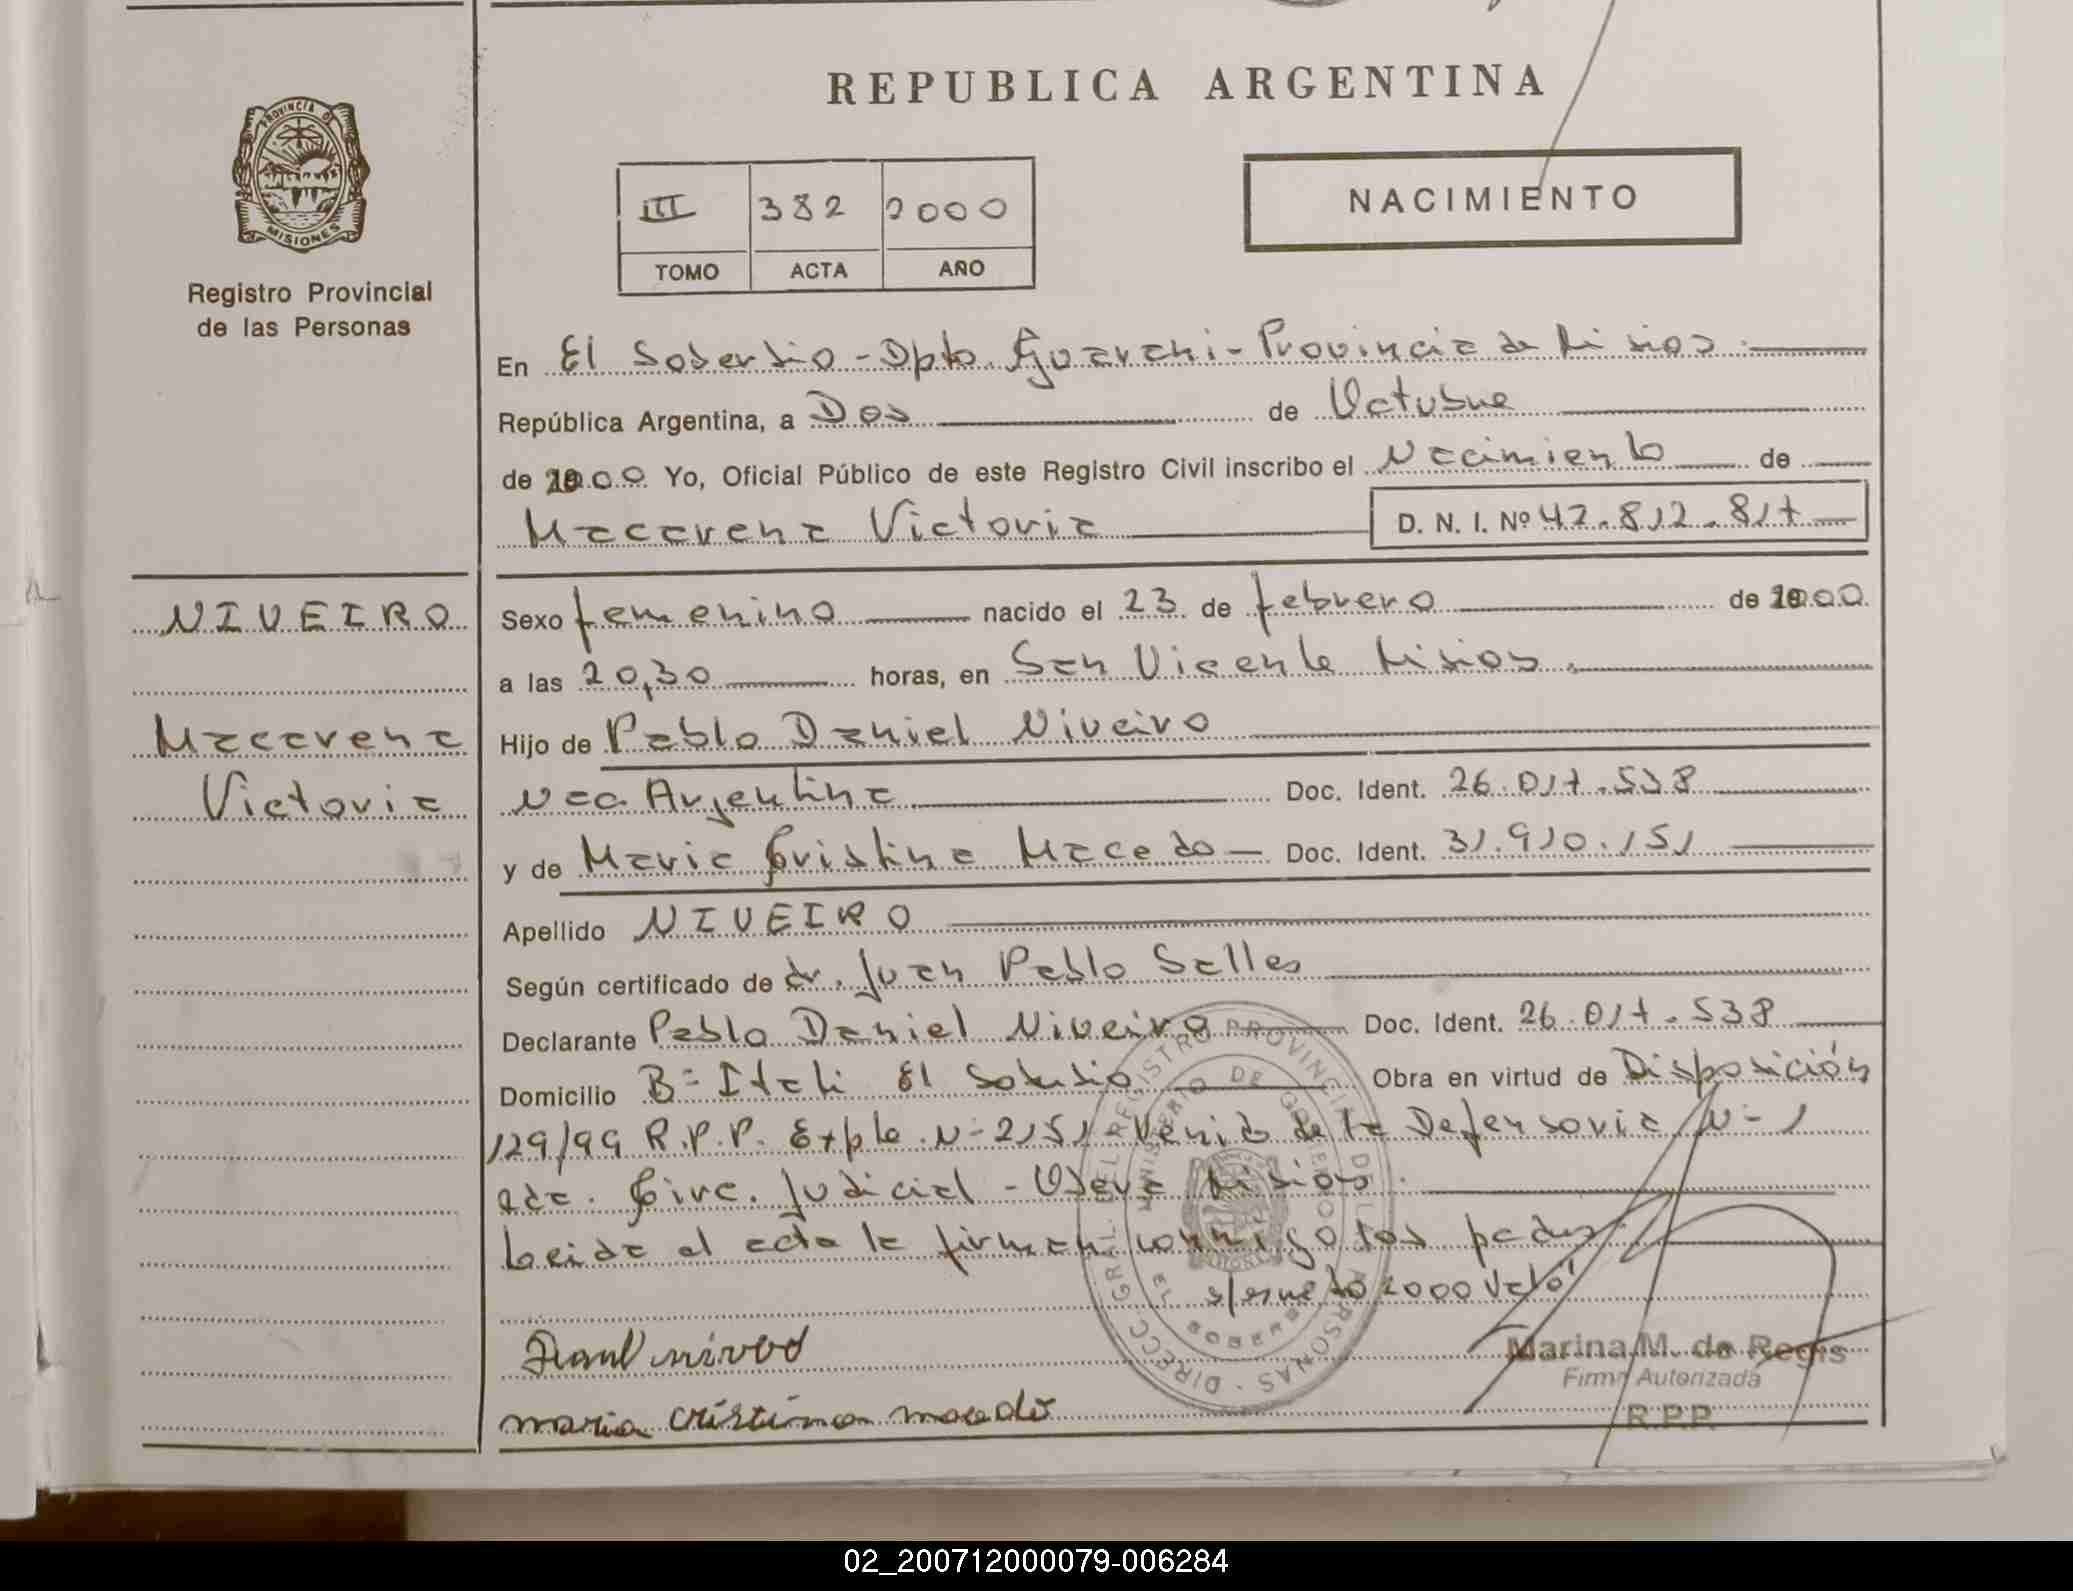 REPUBLICA ARGENTINA
PROVINCIA DE
MISIONES
Registro Provincial
de las Personas
III 382 2000
TOMO ACTA AÑO
NACIMIENTO
En El Soberbio - Dpto. Guarani - Provincia de Misiones
República Argentina, a Dos de Octubre
de 2000 Yo, Oficial Público de este Registro Civil inscribo el Nacimiento de
Macarena Victoria D. N. I. Nº 42.812.817
NIVEIRO
Macarena
Victoria
Sexo femenino nacido el 23 de febrero de 2000
a las 20,30 horas, en San Vicente Misiones.
Hijo de Pablo Daniel Niveiro
Nac. Argentina Doc. Ident. 26.017.538
y de Maria Cristina Macedo Doc. Ident. 31.910.151
Apellido NIVEIRO
Según certificado de dr. Juan Pablo Salles
Declarante Pablo Daniel Niveiro Doc. Ident. 26.017.538
Domicilio Bº Itati El Soberbio Obra en virtud de Disposición
129/99 R.P.P. Expte. Nº 2151 Venida de la Defensoria Nº 1
2da. Circ. Judicial - Obera Misiones.
Leida el acta la firman conmigo los padres.
2000 Vale
maria cristina macedo
DIRECC GRAL DEL REGISTRO PROVINCIAL DE LAS PERSONAS
MINISTERIO DE GOBIERNO
EL SOBERBIO
Marina M. de Regis
Firma Autorizada
R.P.P.
02_200712000079-006284